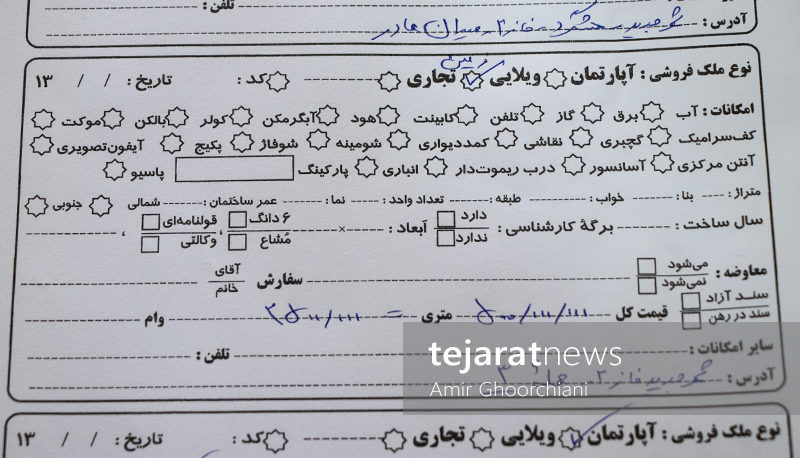 تلفن :
آدرس : شهر جدید هشتگرد - فاز ۲ - میدان مادر
زمین
نوع ملک فروشی : آپارتمان ویلایی تجاری کد : تاریخ : / / ۱۳
امکانات : آب برق گاز تلفن کابینت هود آبگرمکن کولر بالکن موکت
کف‌سرامیک گچبری نقاشی کمددیواری شومینه شوفاژ پکیج آیفون‌تصویری
آنتن مرکزی آسانسور درب ریموت‌دار انباری پارکینگ پاسیو
متراژ : بنا : خواب : طبقه : تعداد واحد : نما : عمر ساختمان : شمالی جنوبی
سال ساخت : برگهٔ کارشناسی : دارد ندارد ابعاد : × ۶ دانگ مُشاع ، قولنامه‌ای وکالتی ،
معاوضه : می‌شود نمی‌شود سفارش آقای خانم
سند آزاد سند در رهن قیمت کل متری = وام
سایر امکانات : تلفن :
آدرس : شهر جدید فاز ۲
tejaratnews
Amir Ghoorchiani
نوع ملک فروشی : آپارتمان ویلایی تجاری کد : تاریخ : / / ۱۳